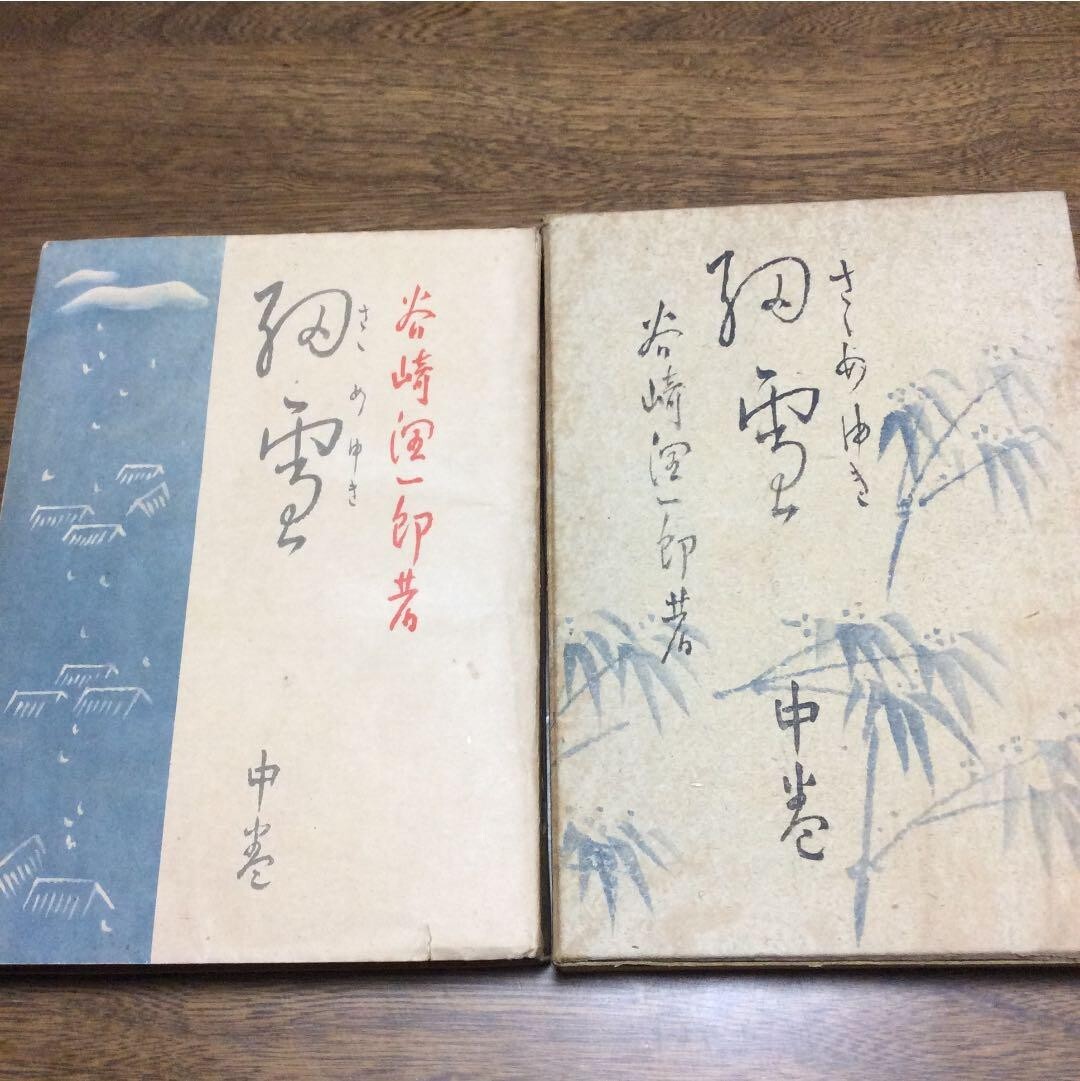 谷崎潤一郎著
細雪
さゝめゆき
中巻
さゝめゆき
細雪
谷崎潤一郎著
中巻